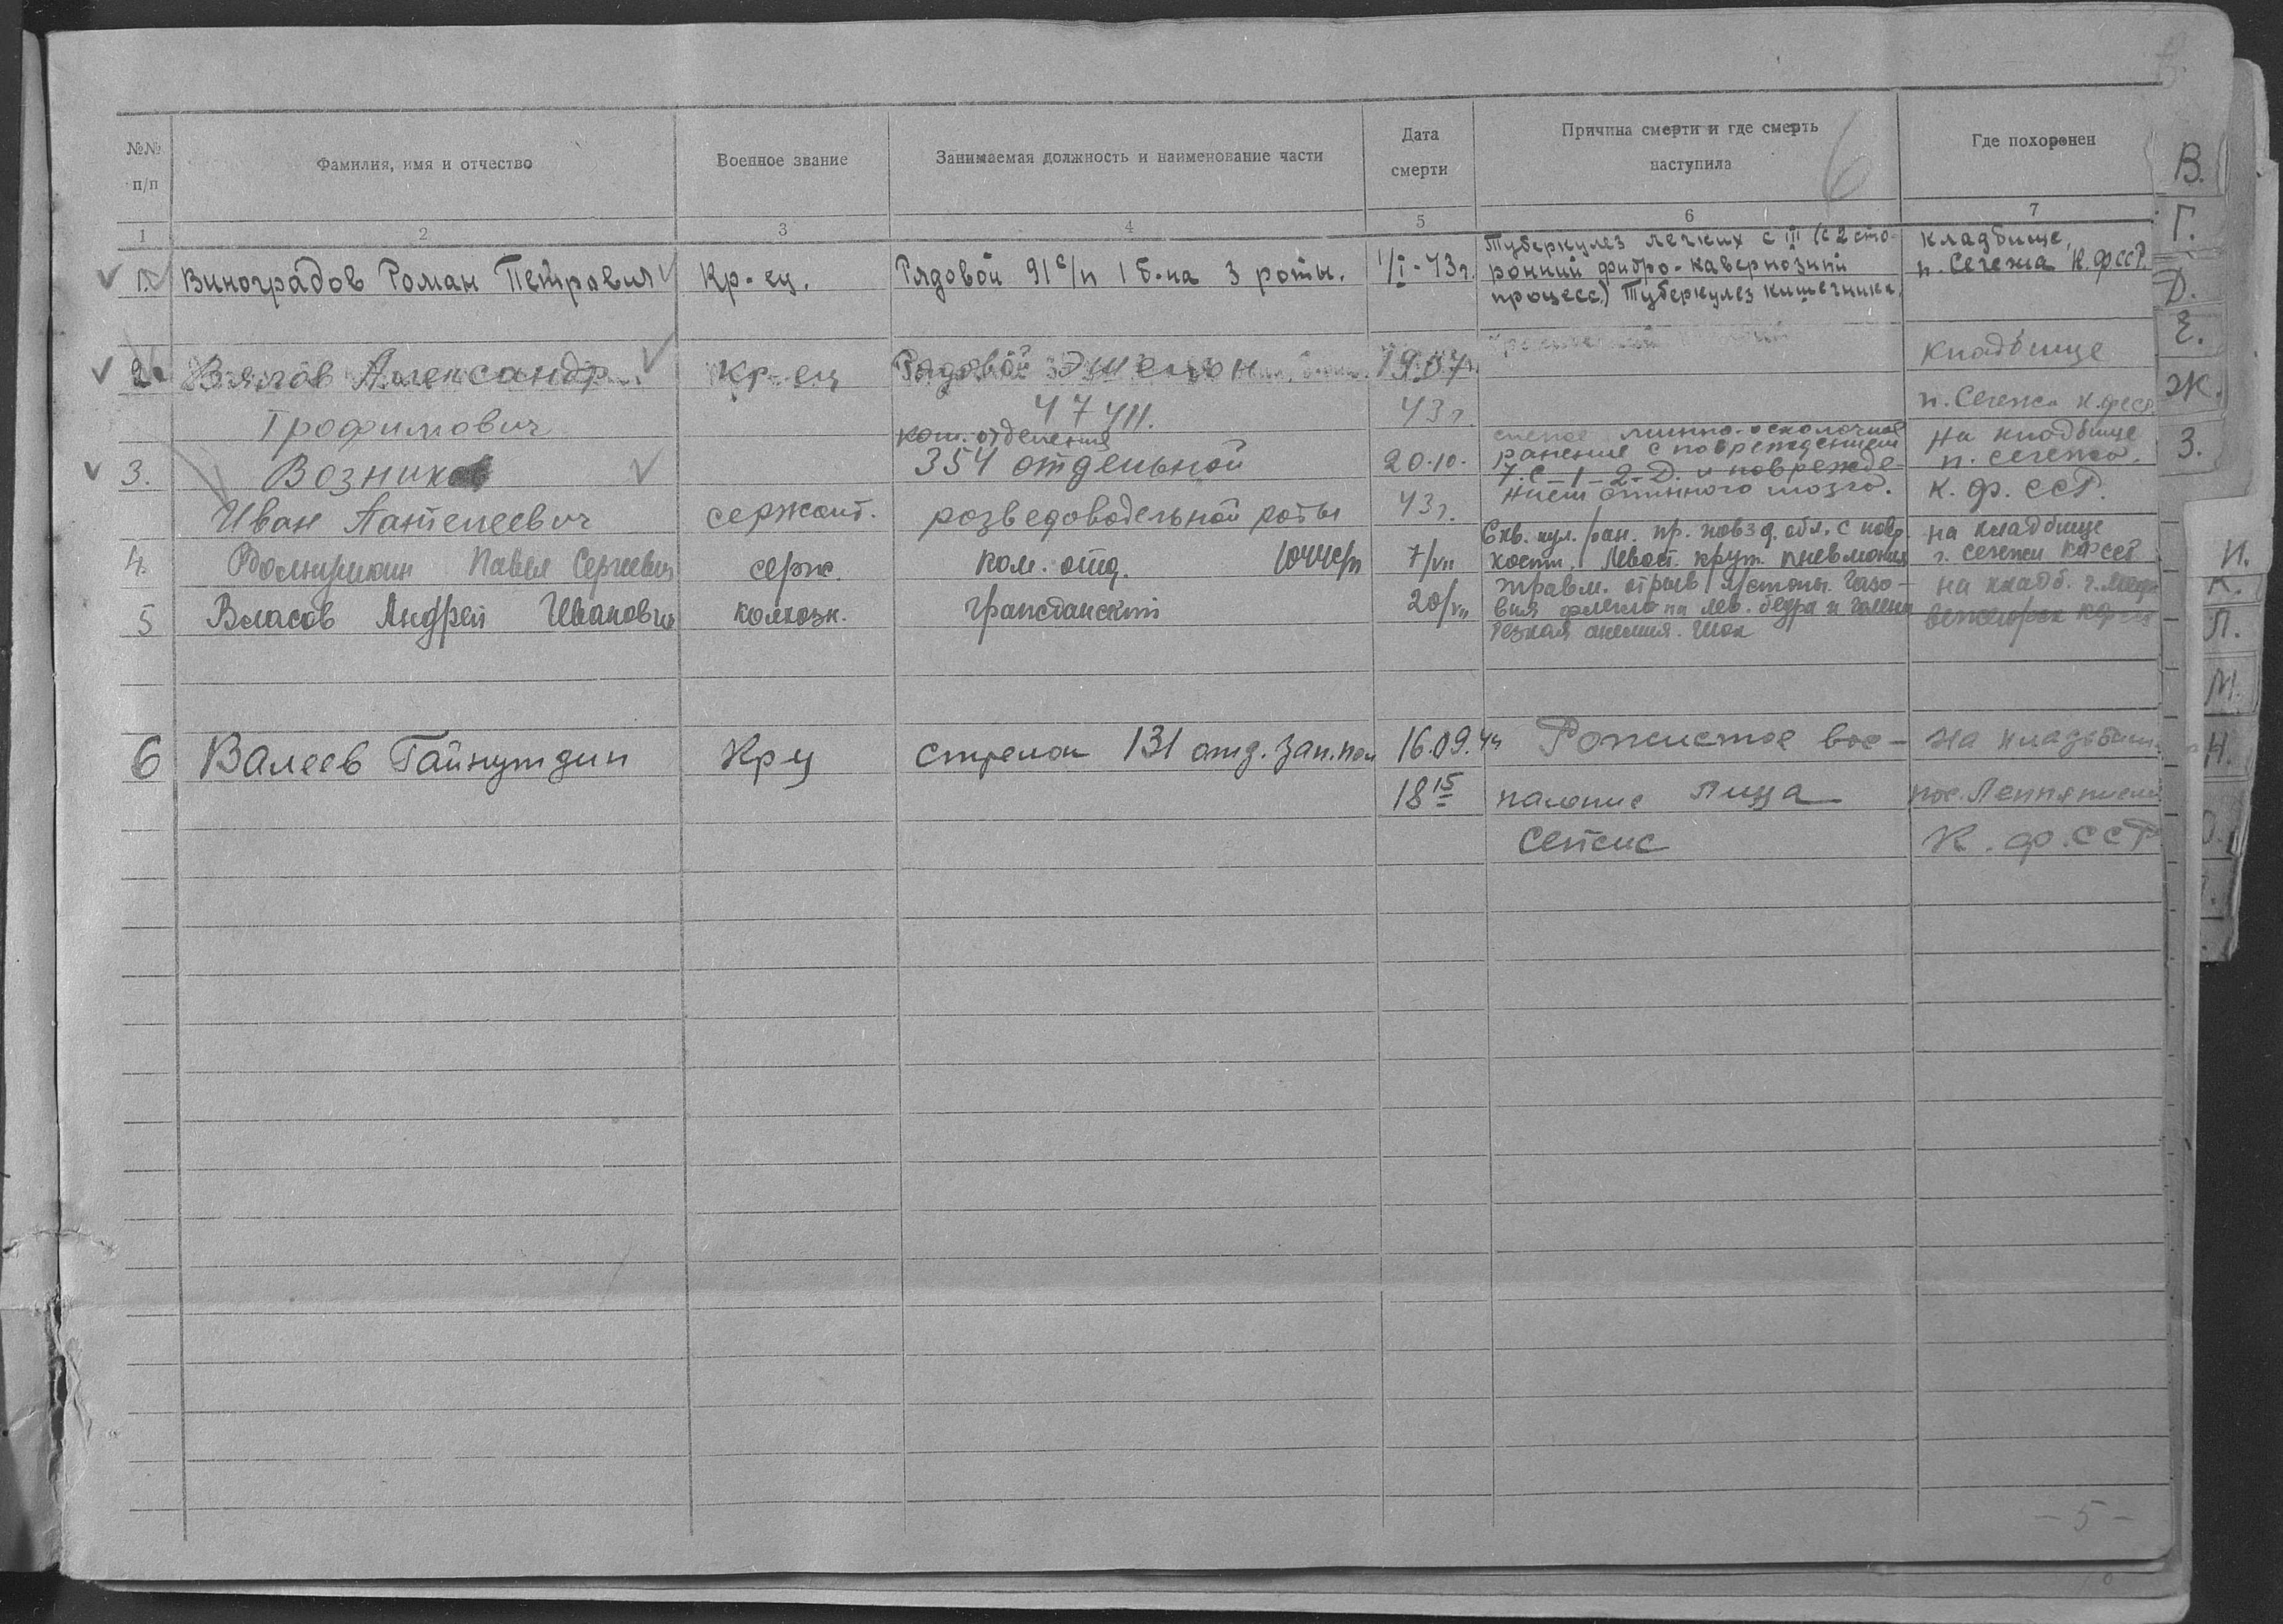 №№ п/п
Фамилия, имя и отчество
Военное звание
Занимаемая должность и наименование части
Дата смерти
Причина смерти и где смерть наступила
Где похоронен
6
1 2 3 4 5 6 7
1. Виноградов Роман Петрович Кр-ец. Рядовой 91 с/п 1 б-на 3 роты. 1/I-43г.
Туберкулез легких с III (с 2 сто-
ронний фибро-кавернозний
процесс) Туберкулез кишечника.
кладбище,
п. Сегежа К.ФССР.
2. Вялов Александр Кр-ец Рядовой Эшелон 19.07
Трофимович 47 43г
Кладбище
п. Сегежа К.фсср
3. Возников
Иван Пантелеевич
сержант.
ком. отделения
354 отдельной
розведоводельной роты
20.10.
43г.
слепое минно-осколочное
ранение с повреждением
7.С-1-2-Д. и поврежде-
нием спинного мозга.
На кладбище
п. Сегежа.
К. ф. ССР.
4. Павел Сергеевич серж. ком. отд. 1044сп 7/VII
Скв. пул. ран. пр. повзд. обл. с повр.
кости. Левост. круп. пневмония
на кладбище
г. Сегежи КФССР
5 Власов Андрей Иванович колхозн. гражданский 20/VII
травм. отрыв л/стопы. Газо-
вая флегмона лев. бедра и голени
Резкая анемия. Шок
на кладб. г. Медв
вежегорск КФССР
6 Валеев Гайнутдин Крц Стрелок 131 отд. зап. пол 16.09.44
18 15
Рожистое вос-
паление лица
Сепсис
На кладбищ.
пос. Леппясюльи
К. ф. ССР
В.
Г.
Д.
Е.
Ж.
З.
И.
К.
Л.
М.
Н.
О.
- 5 -